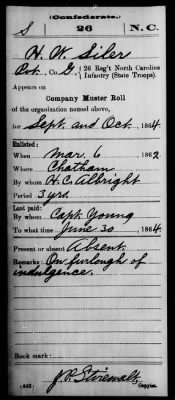 (Confederate.)
S 26 N.C.
H. W. Siler
Pvt., Co. G, 26 Reg't North Carolina
Infantry (State Troops).
Appears on
Company Muster Roll
of the organization named above,
for Sept. and Oct., 1864.
Enlisted:
When Mar. 6, 1862
Where Chatham
By whom H. C. Albright
Period 3 yrs.
Last paid:
By whom Capt. Young
To what time June 30, 1864.
Present or absent Absent.
Remarks: On furlough of
indulgence.
Book mark:
J. P. Stirewalt
(642) Copyist.